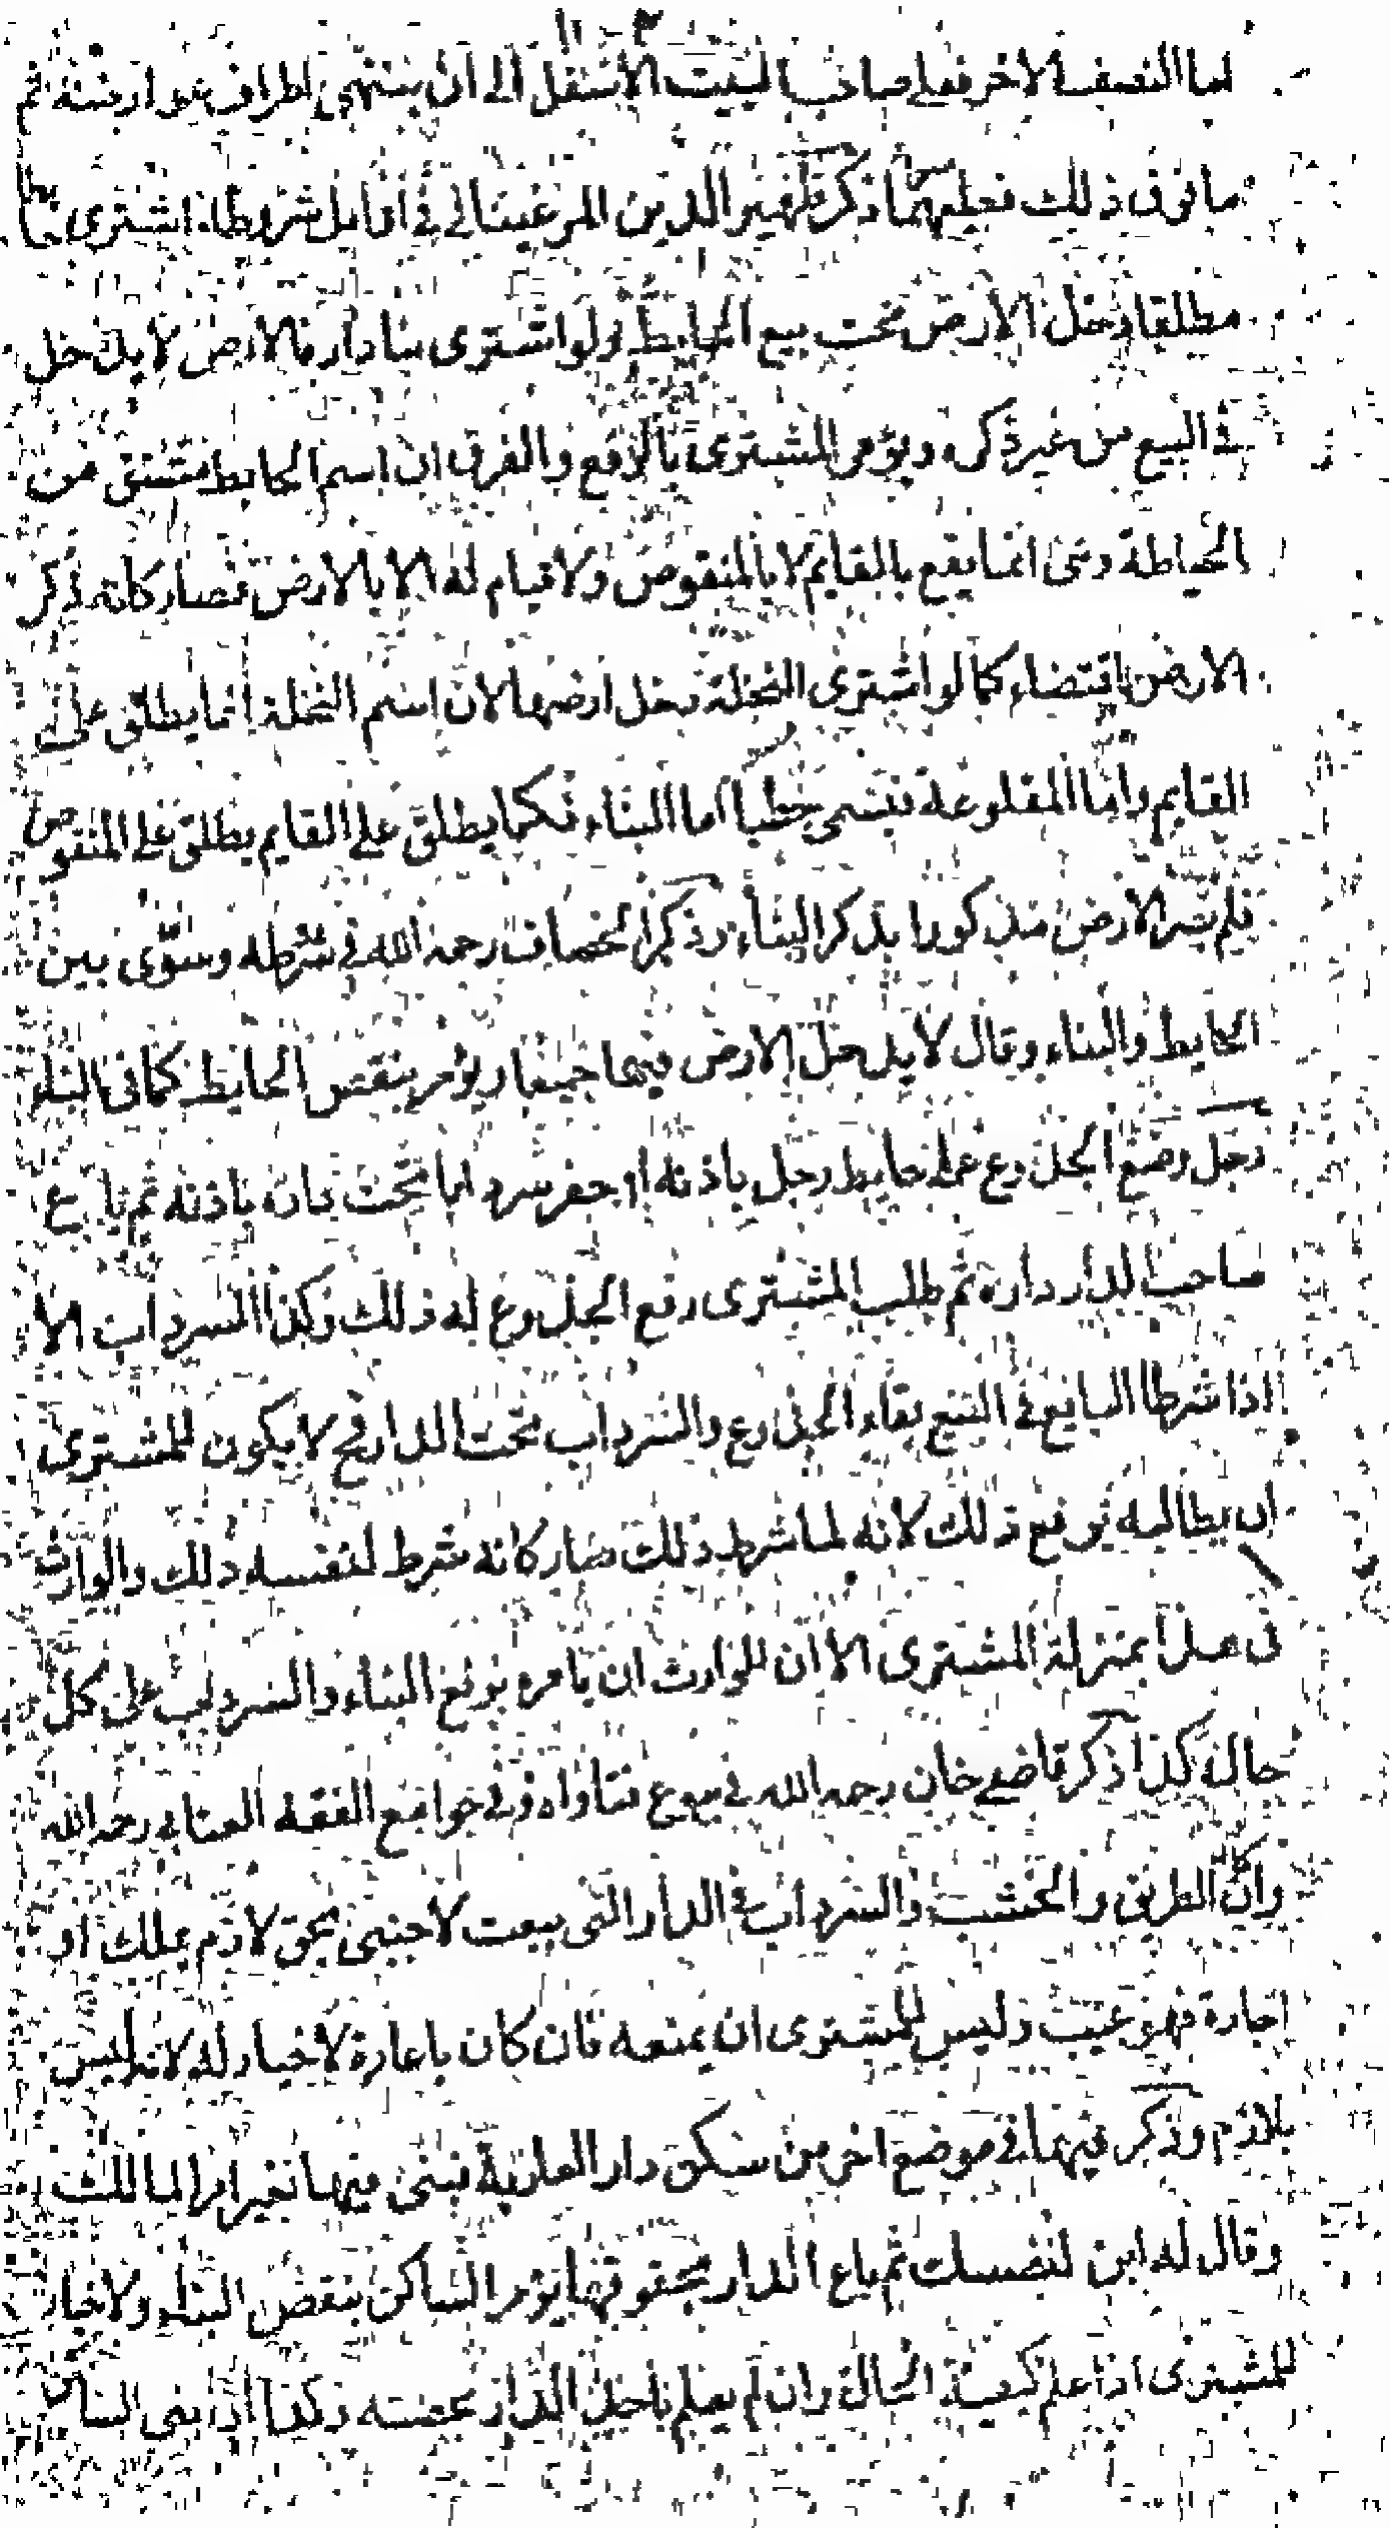 اما النصف الاخر فعلى صاحب البيت الاسفل الى ان ينتهى اطراف عوارضته ثم
ما فوق ذلك فعليهما ذكر ظهير الدين المرغينانى فى اوايل شروطه اشترى حايطا
مطلقا دخل الارض تحت بيع الحايط ولو اشترى بنا دار فالارض لا يدخل
فى البيع من غير ذكره ويؤمر المشترى بالرفع والفرق ان اسم الحايط مشتق من
الحياطة وهى انما يقع بالقايم لا بالمنقوض ولا قيام له الا بالارض فصار كانه ذكر
الارض اقتضاء كما لو اشترى النخلة تدخل ارضها لان اسم النخلة انما يطلق على
القايم واما المقلوعة فيسمى حطبا اما البناء فكما يطلق على القايم يطلق على المنقوض
فلم يصر الارض مذكورا بذكر البناء وذكر الخصاف رحمه الله فى شرطه وسوى بين
الحايط والبناء وقال لا يدخل الارض فيهما جميعا ويؤمر بنقض الحايط كما فى البناء
رجل وضع الجذوع على حايط رجل باذنه او حفر سردابا تحت داره باذنه ثم باع
صاحب الدار داره ثم طلب المشترى رفع الجذوع له ذلك وكذا السرداب الا
اذا شرط البايع فى البيع بقاء الجذوع والسرداب تحت الدار فح لا يكون للمشترى
ان يطالبه برفع ذلك لانه لما شرط ذلك صار كانه شرط لنفسه ذلك والوارث
فى هذا بمنزلة المشترى الا ان للوارث ان يامره برفع البناء والسرداب على كل
حال كذا ذكر قاضى خان رحمه الله فى بيوع فتاواه وفى جوامع الفقه العتابى رحمه الله
وان كان الطريق والخشب والسرداب فى الدار التى بيعت لاجنبى بحق لازم بملك او
اجارة فهو عيب وليس للمشترى ان يمنعه فان كان باعارة لا خيار له لانه ليس
بلازم وذكر فيهما فى موضع اخر من سكن دار العارية فبنى فيها بغير امر المالك
وقال له ابن لنفسك ثم باع الدار بحقوقها يؤمر الساكن بنقض البناء ولا خيار
للمشترى اذا علم كيفية الحال وان لم يعلم ياخذ الدار بحصته وكذا اذا بنى الساكن